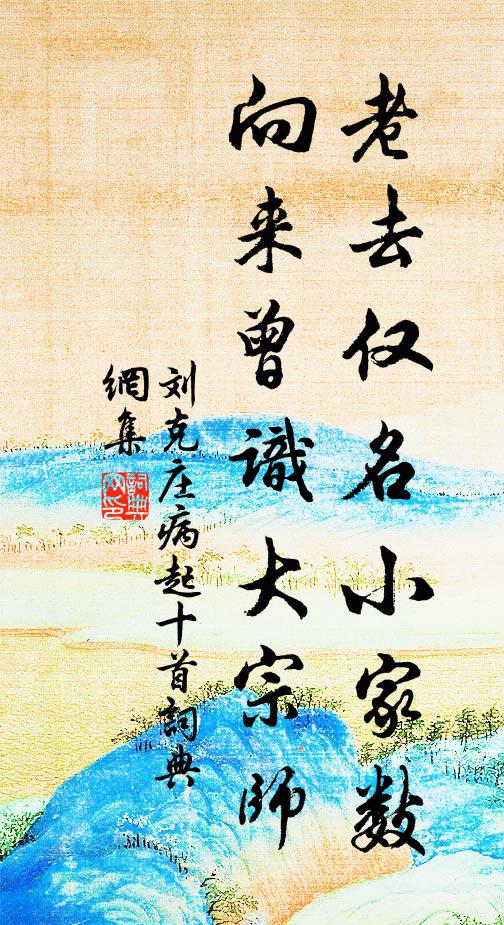 老去仅名小家数
向来曾識大宗师
刘克庄病起十首詞典
網集